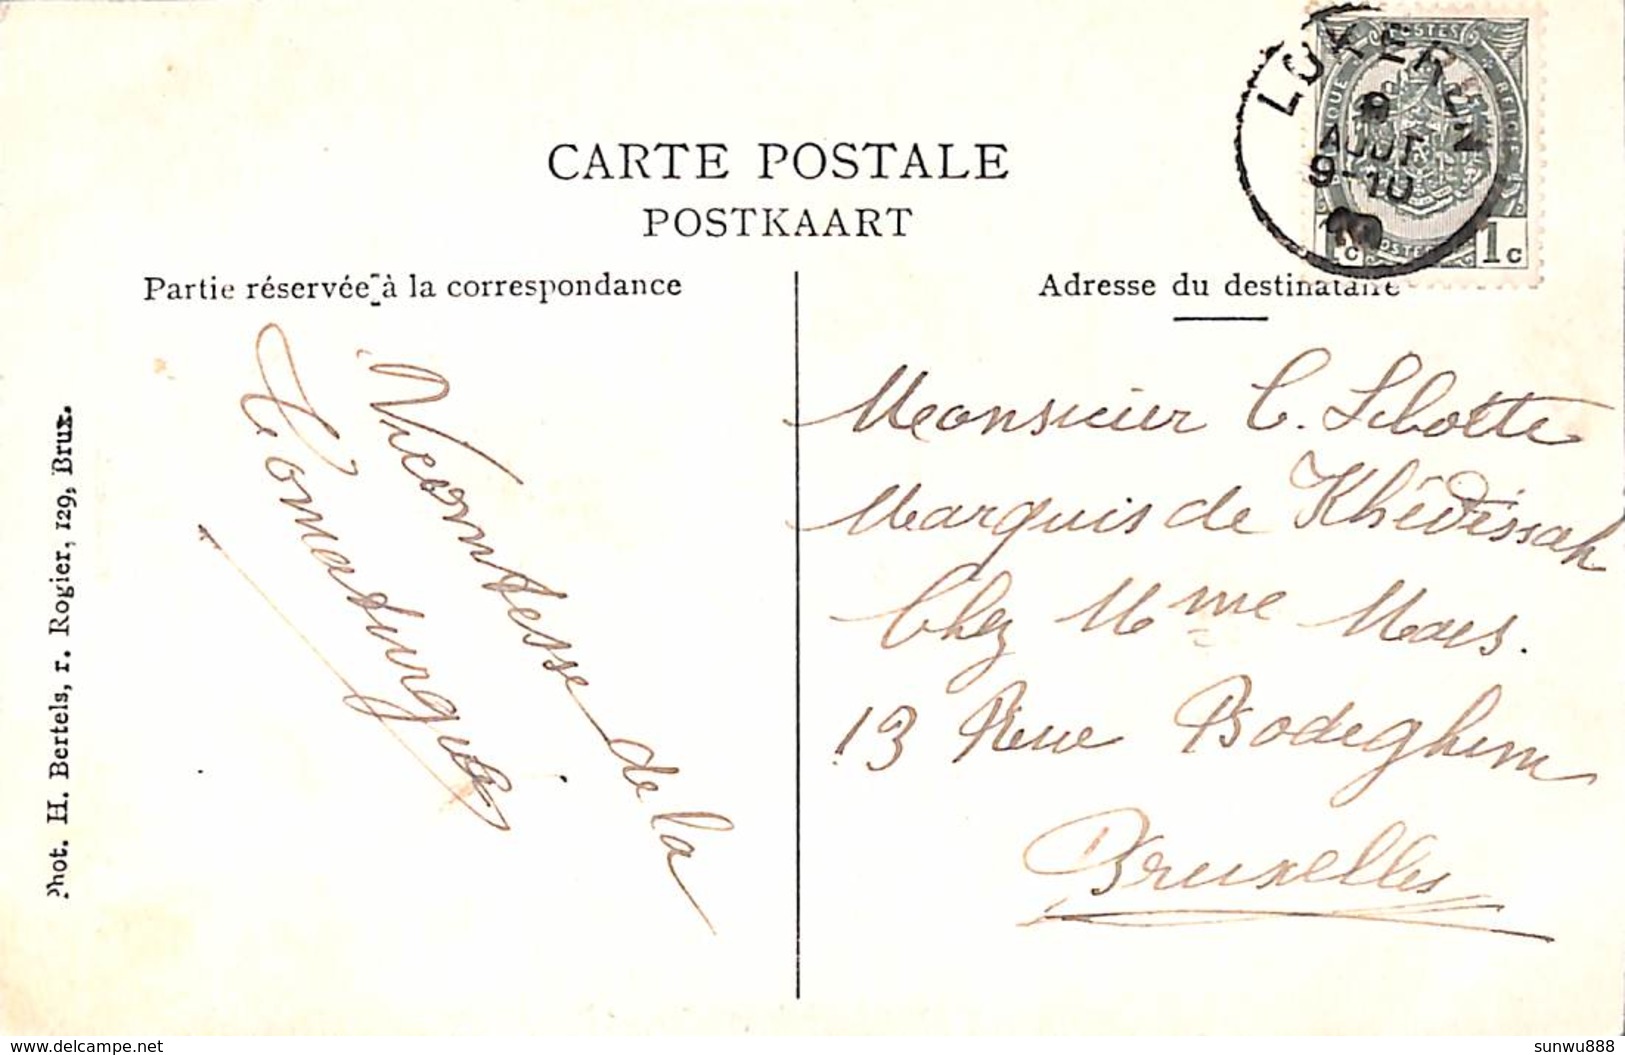 CARTE POSTALE
POSTKAART
Partie réservée à la correspondance
Adresse du destinataire
LOKEREN
AOUT
9-10
POSTES
1c
1c
Vicomtesse de la
Monsieur C. Libotte
Marquis de Khédissah
Chez Mme Maes.
13 Rue Bodeghem
Bruxelles
Phot. H. Bertels, r. Rogier, 129, Brux.
www.delcampe.net
sunwu888